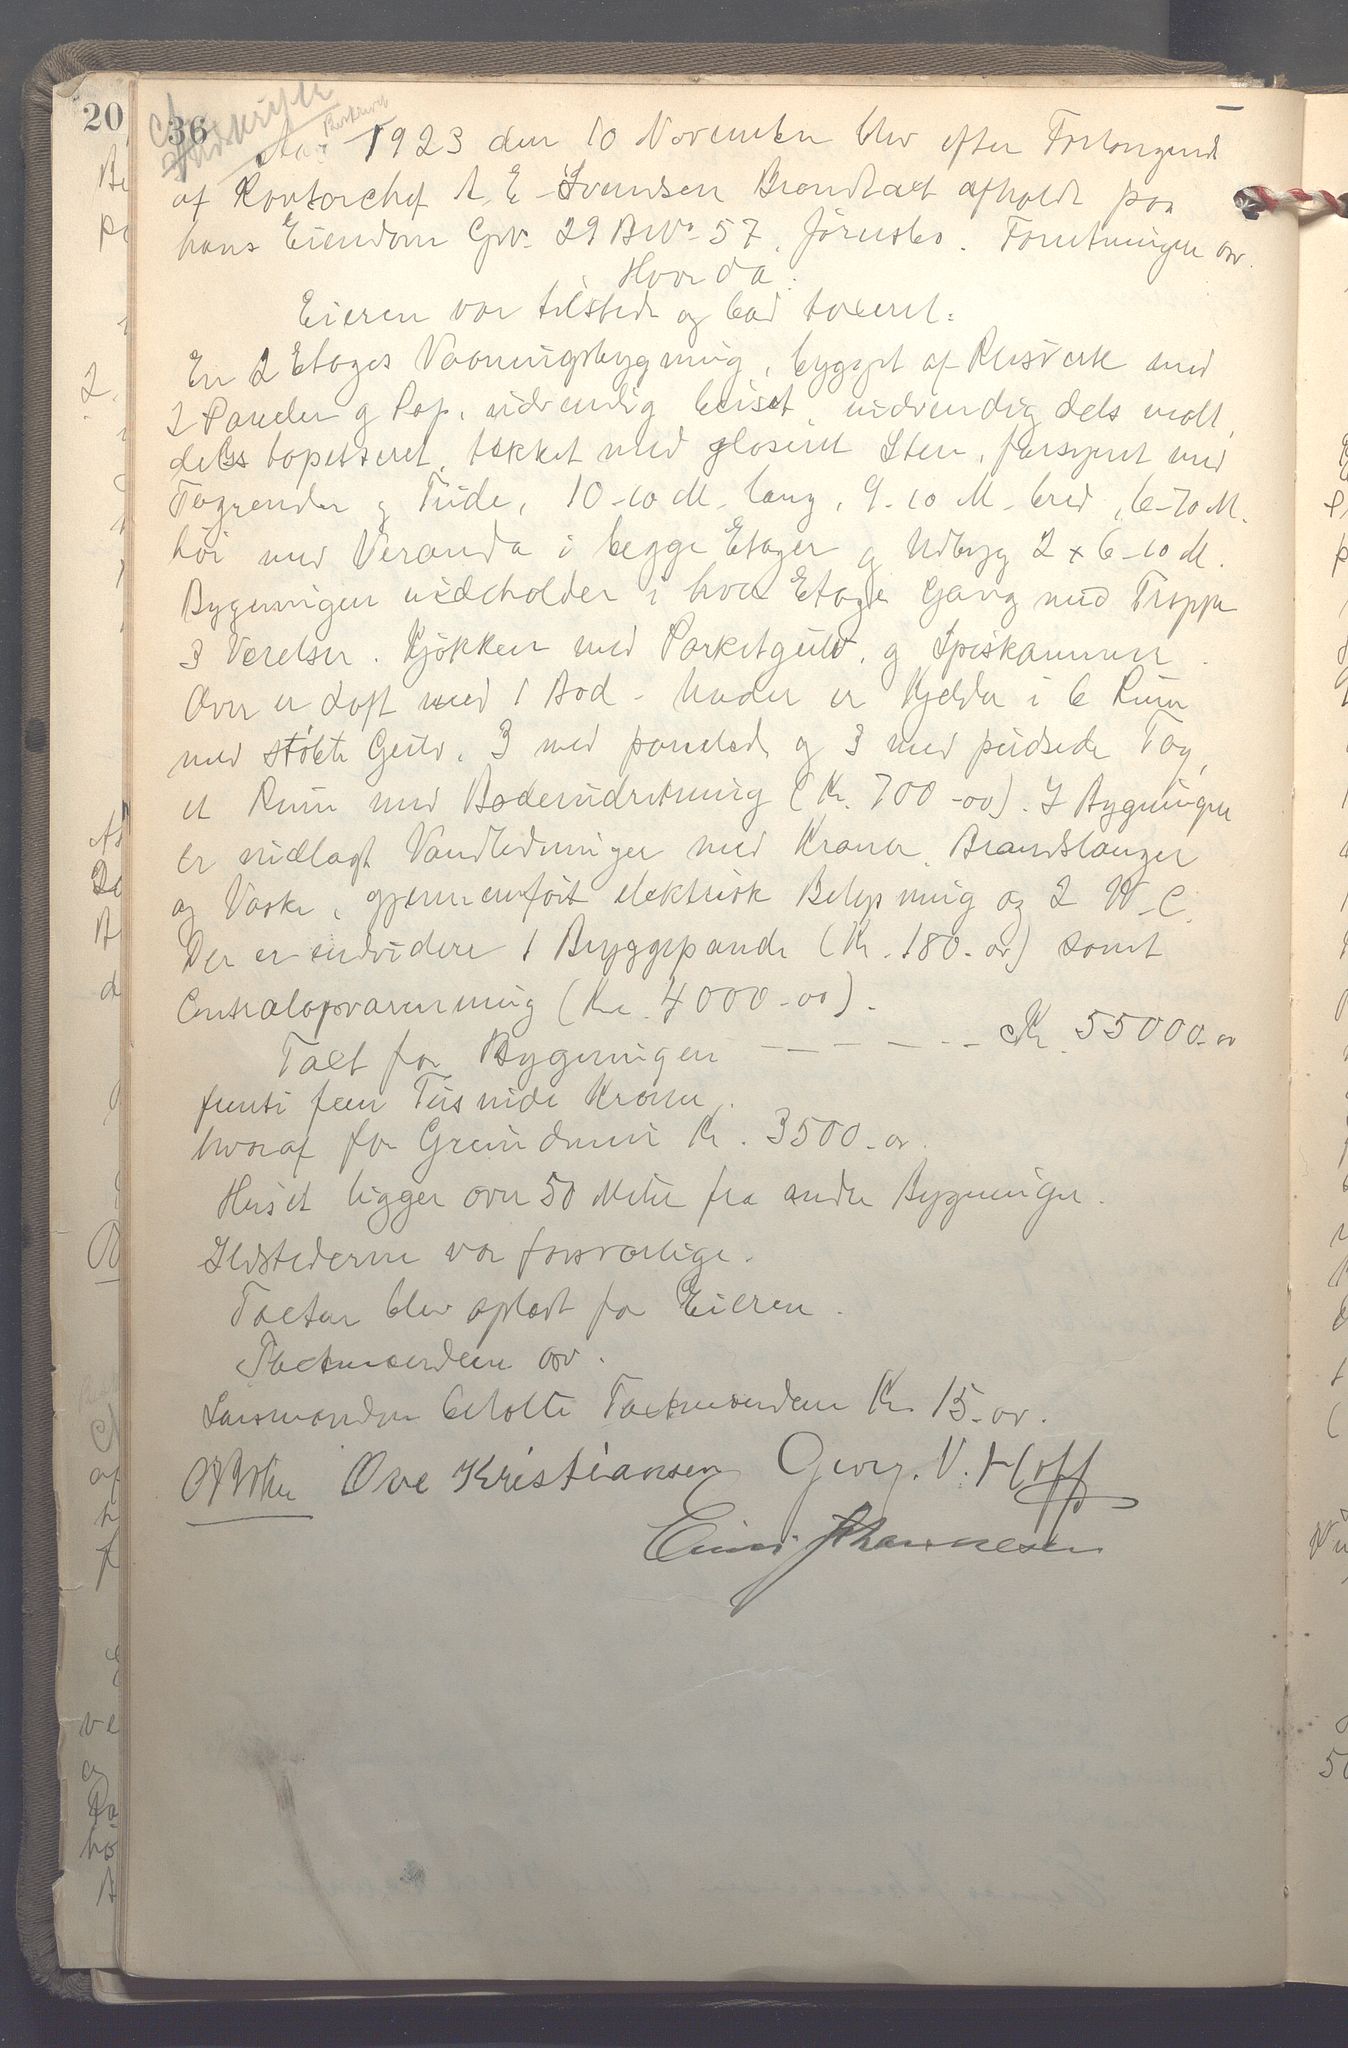 20
36
Udskrift
Aar 1923 den 10 November blev efter Forlangende
af Kontorchef A. E. Svendsen Brandtaxt afholdt paa
hans Eiendom Gno. 29 Bno. 57, Jørnsbo. Forretningen osv.
Hvorda:
Eieren var tilstede og bad taxeret:
En 2 Etages Vaaningsbygning, bygget af Reisverk med
2 Paneler og Pap, udvendig beiset, indvendig dels malt,
dels tapetseret, tækket med glaseret Sten, forsynet med
Tagrender og Trude, 10-10 M. lang, 9-10 M. bred, 6-70 M.
høi med Veranda i begge Etager og Udbyg 2 x 6-10 M.
Bygningen indeholder i hver Etage Gang med Trappe
3 Værelser. Kjøkken med Parketgulv, og Spiskammer.
Over er Loft med 1 Bod. Under er Kjelder i 6 Rum
med støbte Gulv, 3 med panelede og 3 med pudsede Tag,
et Rum med Badeindretning (Kr. 700-00). I Bygningen
er indlagt Vandledninger med Kraner, Brandslanger
og Vaske, gjennemført elektrisk Belysning og 2 W.C.
Der er endvidere 1 Bryggepande (Kr. 180-00) samt
Centralopvarmning (Kr. 4000-00).
Taxt for Bygningen — — — — — Kr. 55000-00
femti fem Tusinde Kroner.
hvoraf for Grundmur Kr. 3500-00.
Huset ligger over 50 Meter fra andre Bygninger.
Ildstederne var forsvarlige.
Taxten blev oplæst for Eieren.
Taxtmændene osv.
Lensmanden betalte Taxtmændene Kr. 15-00.
Ove Kristiansen Georg. V. Hoff
Einar Johannesen